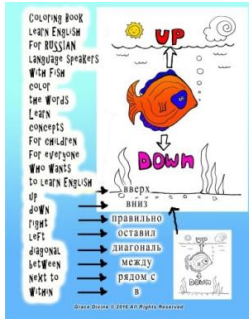 COLORING BOOK
LEARN ENGLISH
FOR RUSSIAN
LANGUAGE SPEAKERS
WITH FISH
COLOR
THE WORDS
LEARN
CONCEPTS
FOR CHILDREN
FOR EVERYONE
WHO WANTS
TO LEARN ENGLISH
UP
DOWN
RIGHT
LEFT
DIAGONAL
BETWEEN
NEXT TO
WITHIN
UP
DOWN
вверх
вниз
правильно
оставил
диагональ
между
рядом с
в
UP
DOWN
Grace Divine © 2016 All Rights Reserved